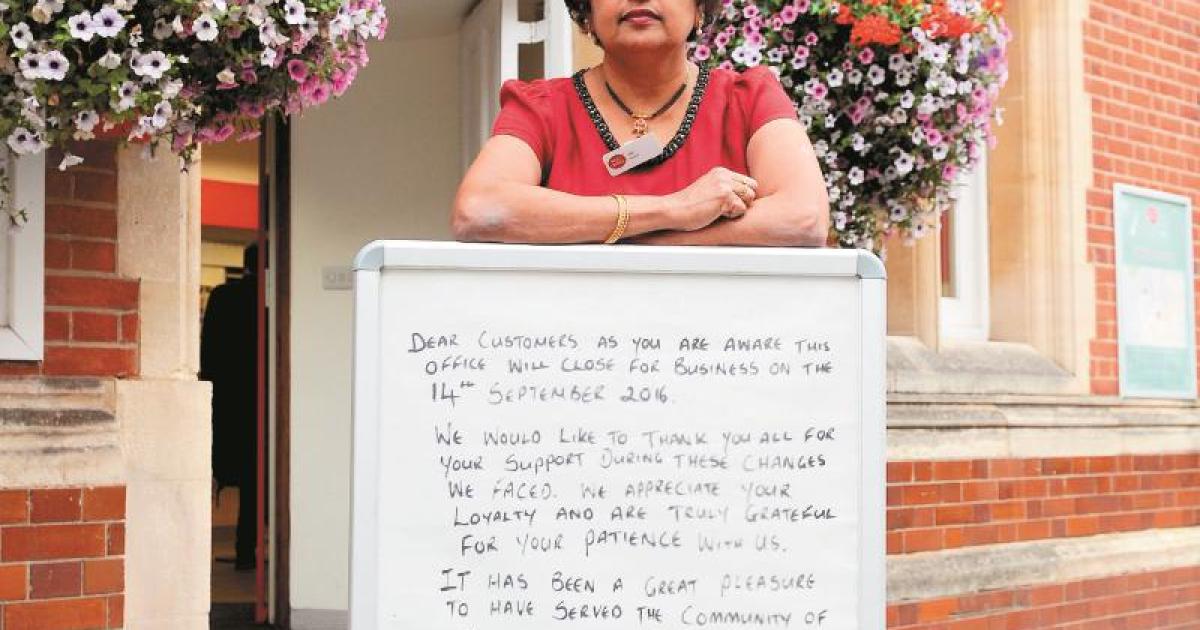 DEAR CUSTOMERS AS YOU ARE AWARE THIS
OFFICE WILL CLOSE FOR BUSINESS ON THE
14TH SEPTEMBER 2016.
WE WOULD LIKE TO THANK YOU ALL FOR
YOUR SUPPORT DURING THESE CHANGES
WE FACED. WE APPRECIATE YOUR
LOYALTY AND ARE TRULY GRATEFUL
FOR YOUR PATIENCE WITH US.
IT HAS BEEN A GREAT PLEASURE
TO HAVE SERVED THE COMMUNITY OF